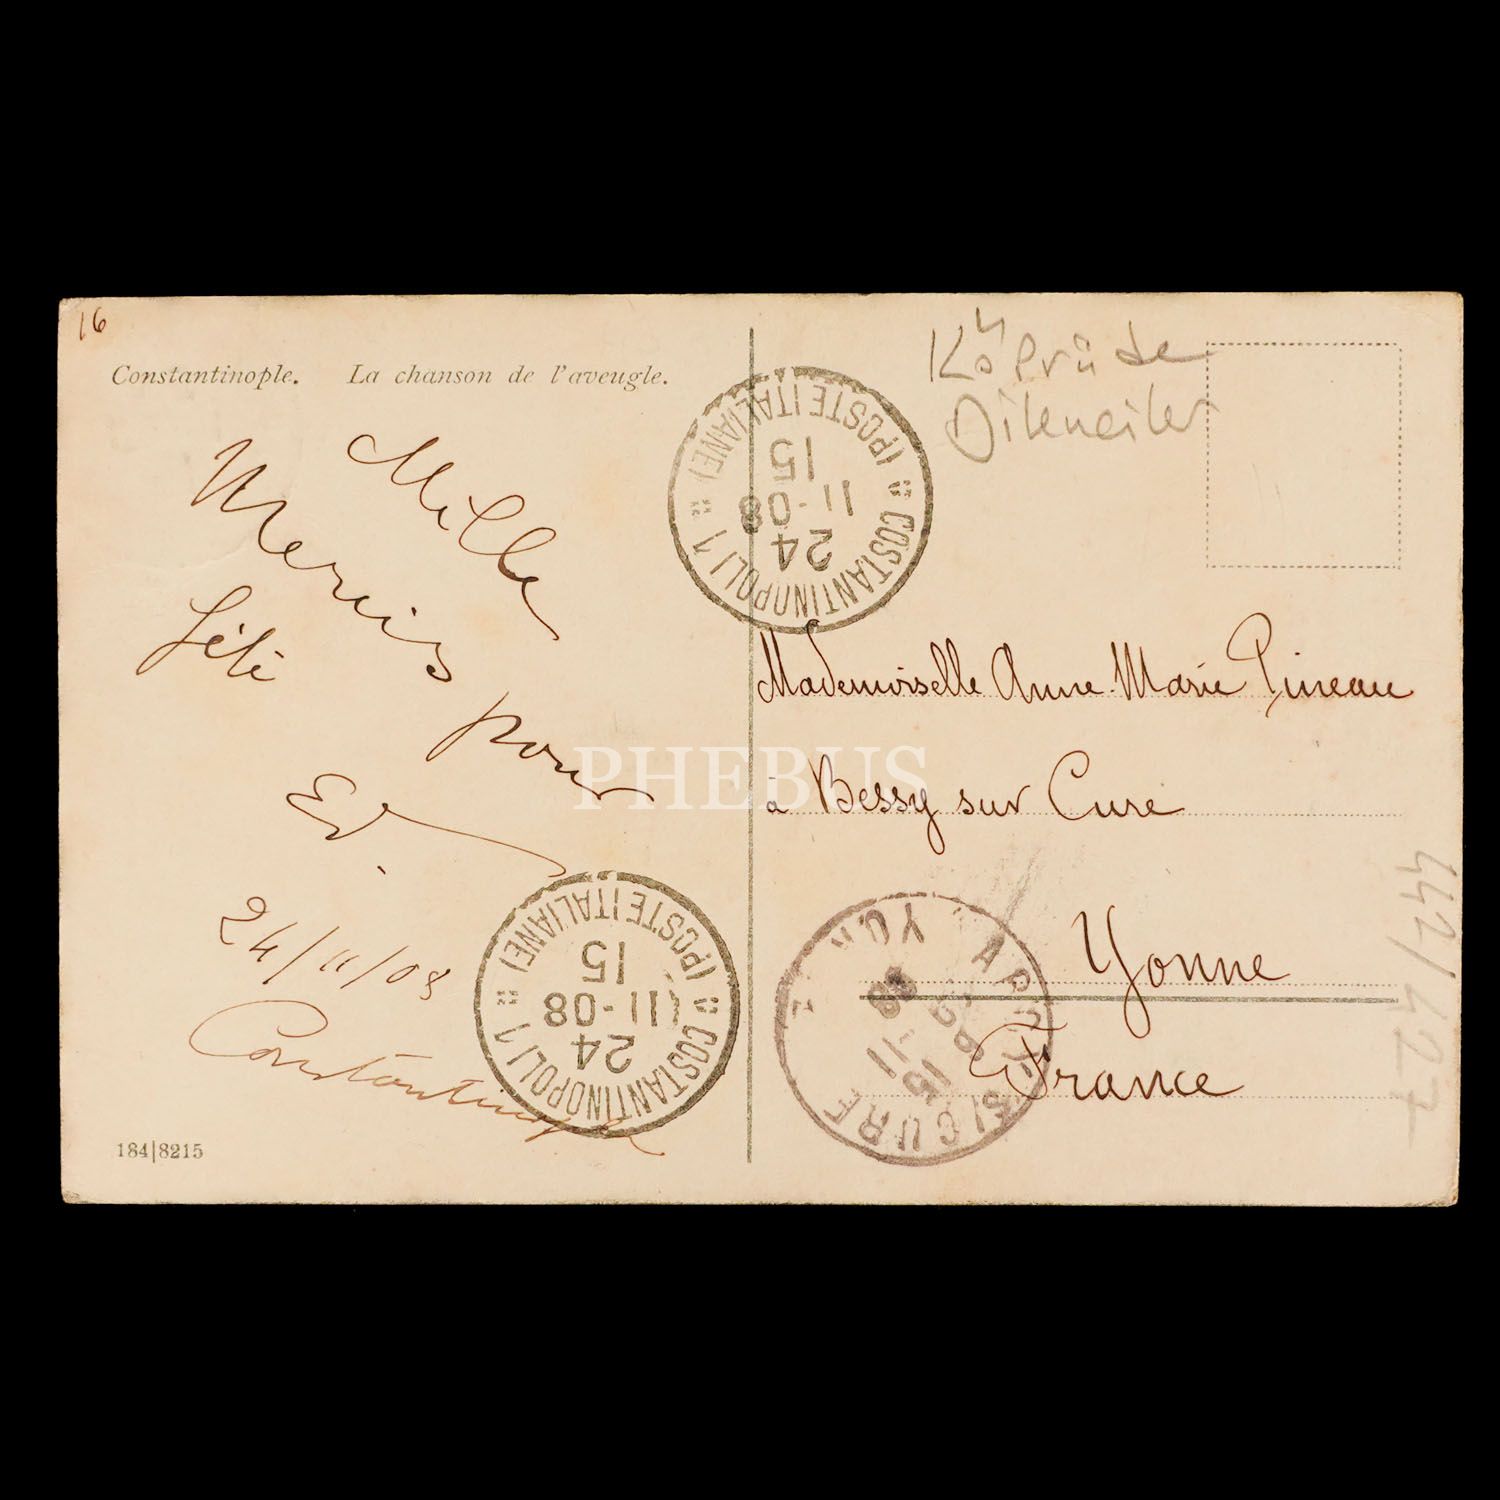 16
Constantinople. La chanson de l'aveugle.
Mille
Mercis pour
fété
Ed.
24/11/08
Constantinople
184|8215
COSTANTINOPOLI 1
(POSTE ITALIANE)
24
11-08
15
COSTANTINOPOLI 1
(POSTE ITALIANE)
24
11-08
15
Köprüde
Dilenciler
Mademoiselle Anne-Marie Pineau
à Bessy sur Cure
Yonne
France
15
-11
S/CURE
PHEBUS